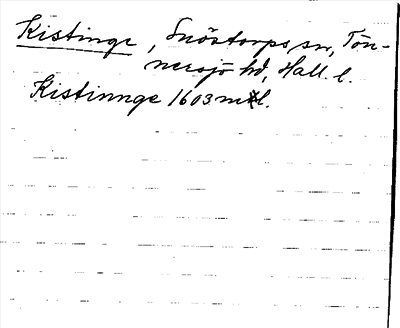 Kistinge, Snöstorps sn, Tön-
nersjö hd, Hall. l.
Kistinnge 1603 mtl.